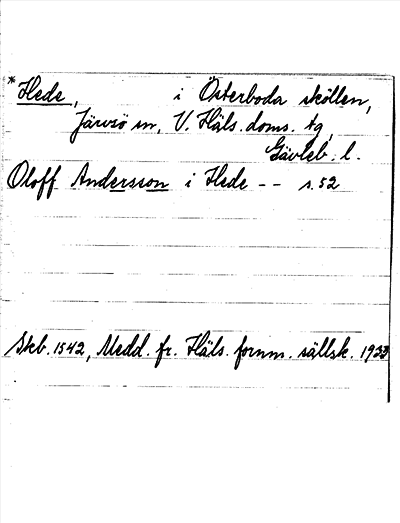 *Hede, i Österboda sköllen,
Järvsö sn, V. Häls. doms. tg,
Gävleb. l.
Oloff Andersson i Hede -- s. 52
Skb. 1542, Medd. fr. Häls. fornm. sällsk. 1933